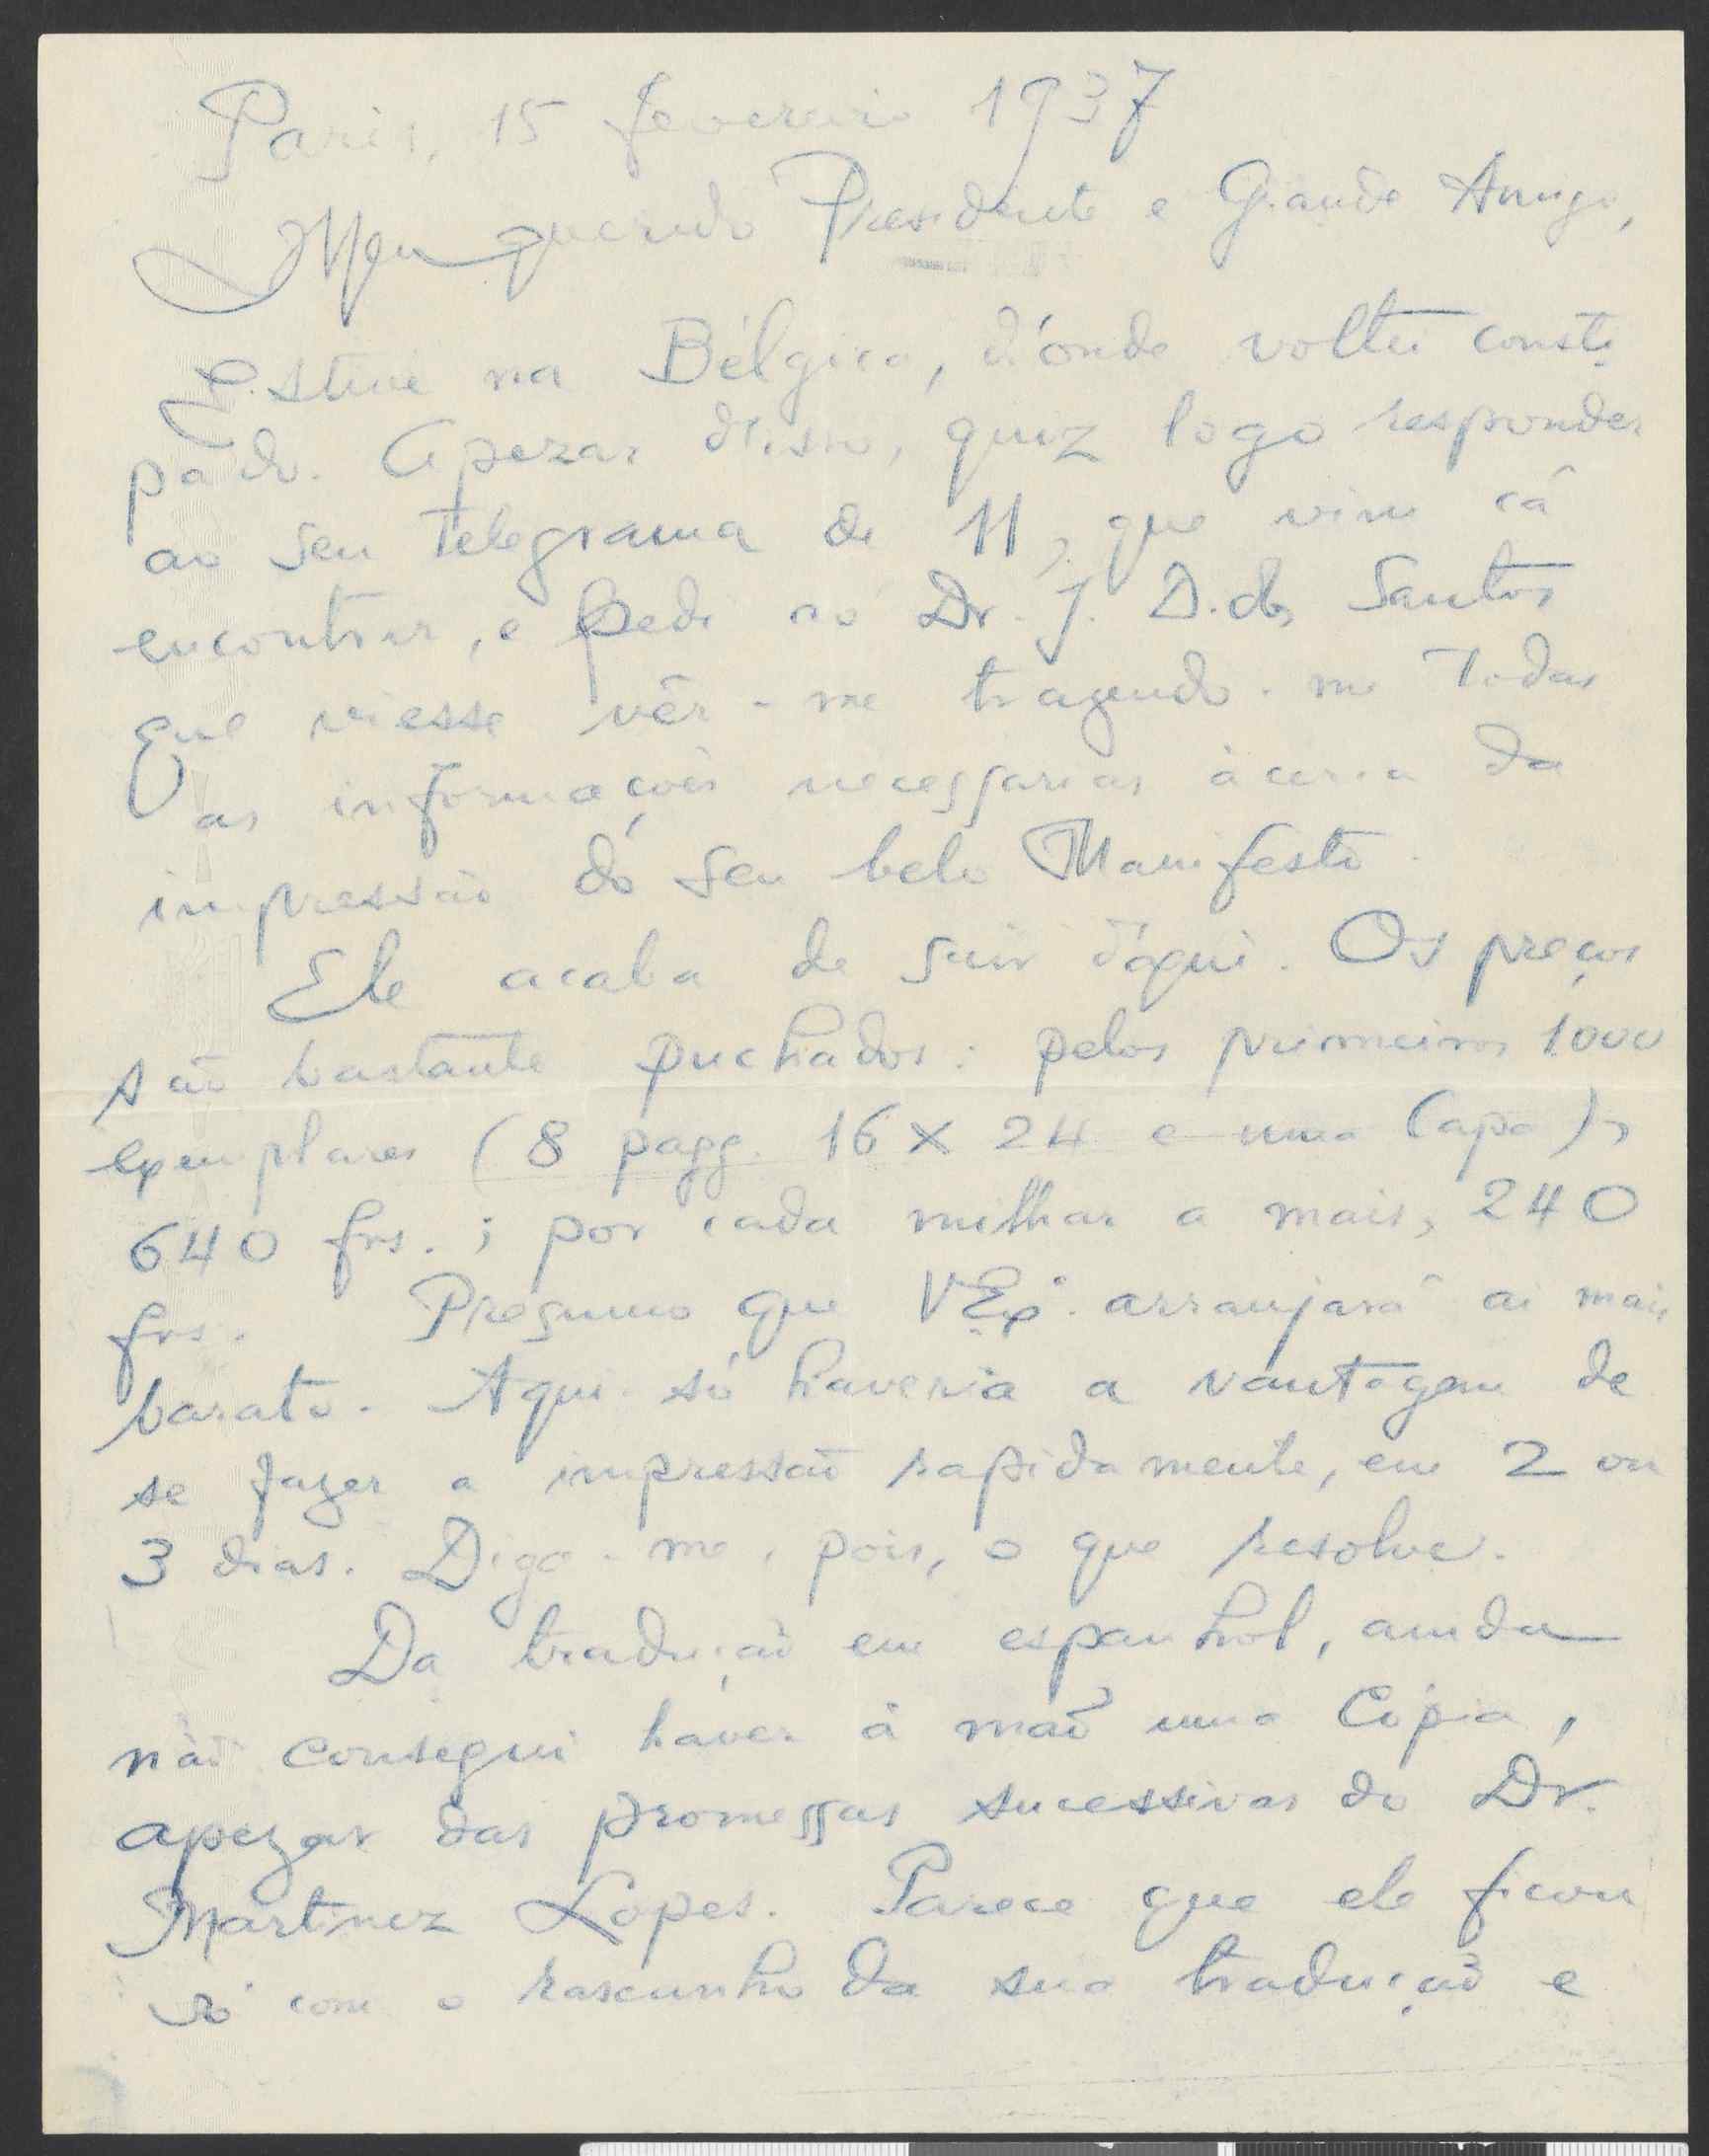 Paris, 15 fevereiro 1937
Meu querido Presidente e Grande Amigo,
Estive na Bélgica, d'onde voltei consti-
pado. Apezar d'isso, quiz logo responder
ao seu telegrama de 11, que vim cá
encontrar, e pedi ao Dr. J. D. dos Santos
que viesse vêr-me trazendo-me todas
as informações necessarias àcerca da
impressão do seu belo Manifesto.
Ele acaba de sair d'aqui. Os preços
são bastante puchados: pelos primeiros 1000
exemplares (8 pagg. 16 x 24 e uma capa),
640 frs.; por cada milhar a mais, 240
frs. Presumo que V Exª. arranjará aí mais
barato. Aqui só haveria a vantagem de
se fazer a impressão rapidamente, em 2 ou
3 dias. Diga-me, pois, o que resolve.
Da tradução em espanhol, ainda
não consegui haver à mão uma cópia,
apezar das promessas sucessivas do Dr.
Martinez Lopes. Parece que ele ficou
só com o rascunho da sua tradução e